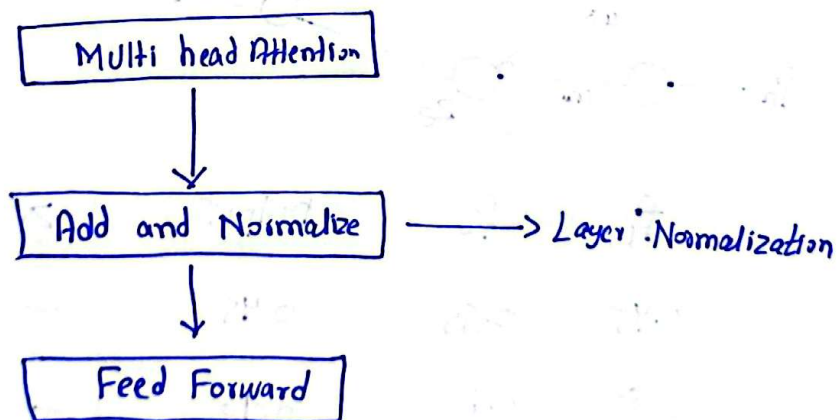 Multi head Attention
Add and Normalize
Layer Normalization
Feed Forward